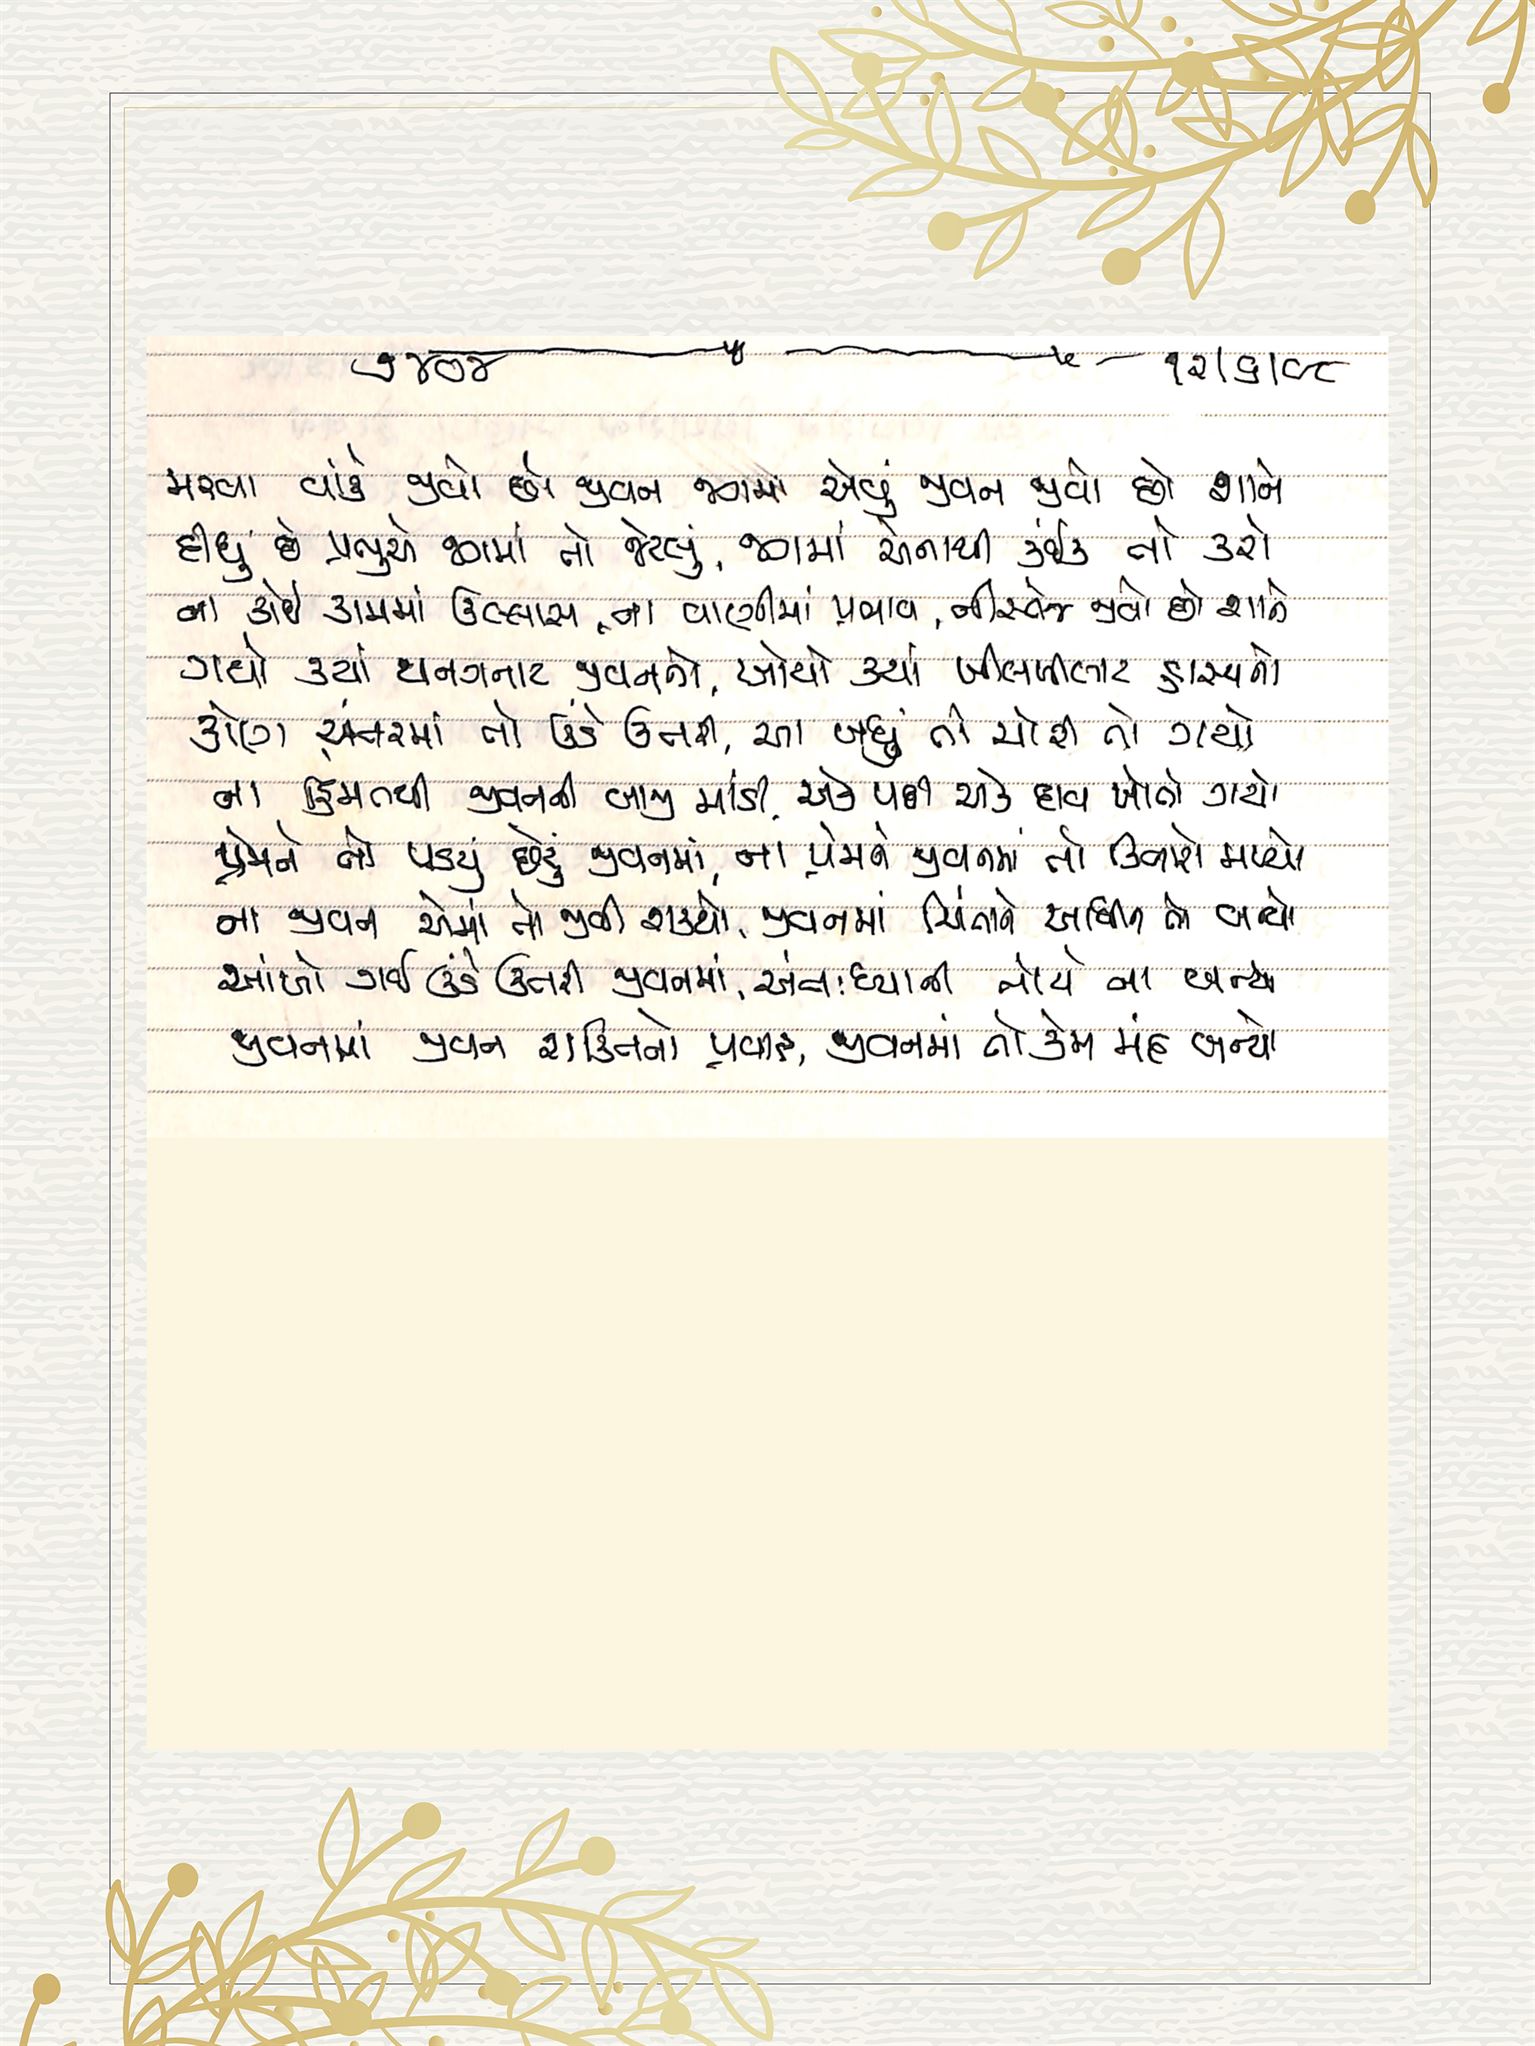 ૭૪૭૪ ૧૨/૬/૯૮
મરવા વાંકે જીવો છો જીવન જગમાં એવું જીવન જીવો છો શાને
દીધું છે પ્રભુએ જગમાં તો જેટલું, જગમાં એનાથી કંઈક તો કરો
ના કોઈ કામમાં ઉલ્લાસ, ના વાણીમાં પ્રભાવ, નીસ્તેજ જીવો છો શાને
ગયો ક્યાં થનગનાટ જીવનનો, ખોયો ક્યાં ખીલખીલાટ હાસ્યનો
કોણ અંતરમાં તો ઉંડે ઉતરી, આ બધું તો ચોરી તો ગયો
ના હિંમતથી જીવનની બાજી માંડી, એક પછી એક દાવ ખોતો ગયો
પ્રેમને તો પડયું છેટું જીવનમાં, ના પ્રેમને જીવનમાં તો કિનારો મળ્યો
ના જીવન એમાં તો જીવી શક્યો, જીવનમાં ચિંતાને આધીન તો બન્યો
આંખો ગઈ ઉંડે ઉતરી જીવનમાં, અંતઃધ્યાની તોયે ના બન્યો
જીવનમાં જીવન શક્તિનો પ્રવાહ, જીવનમાં તો કેમ મંદ બન્યો